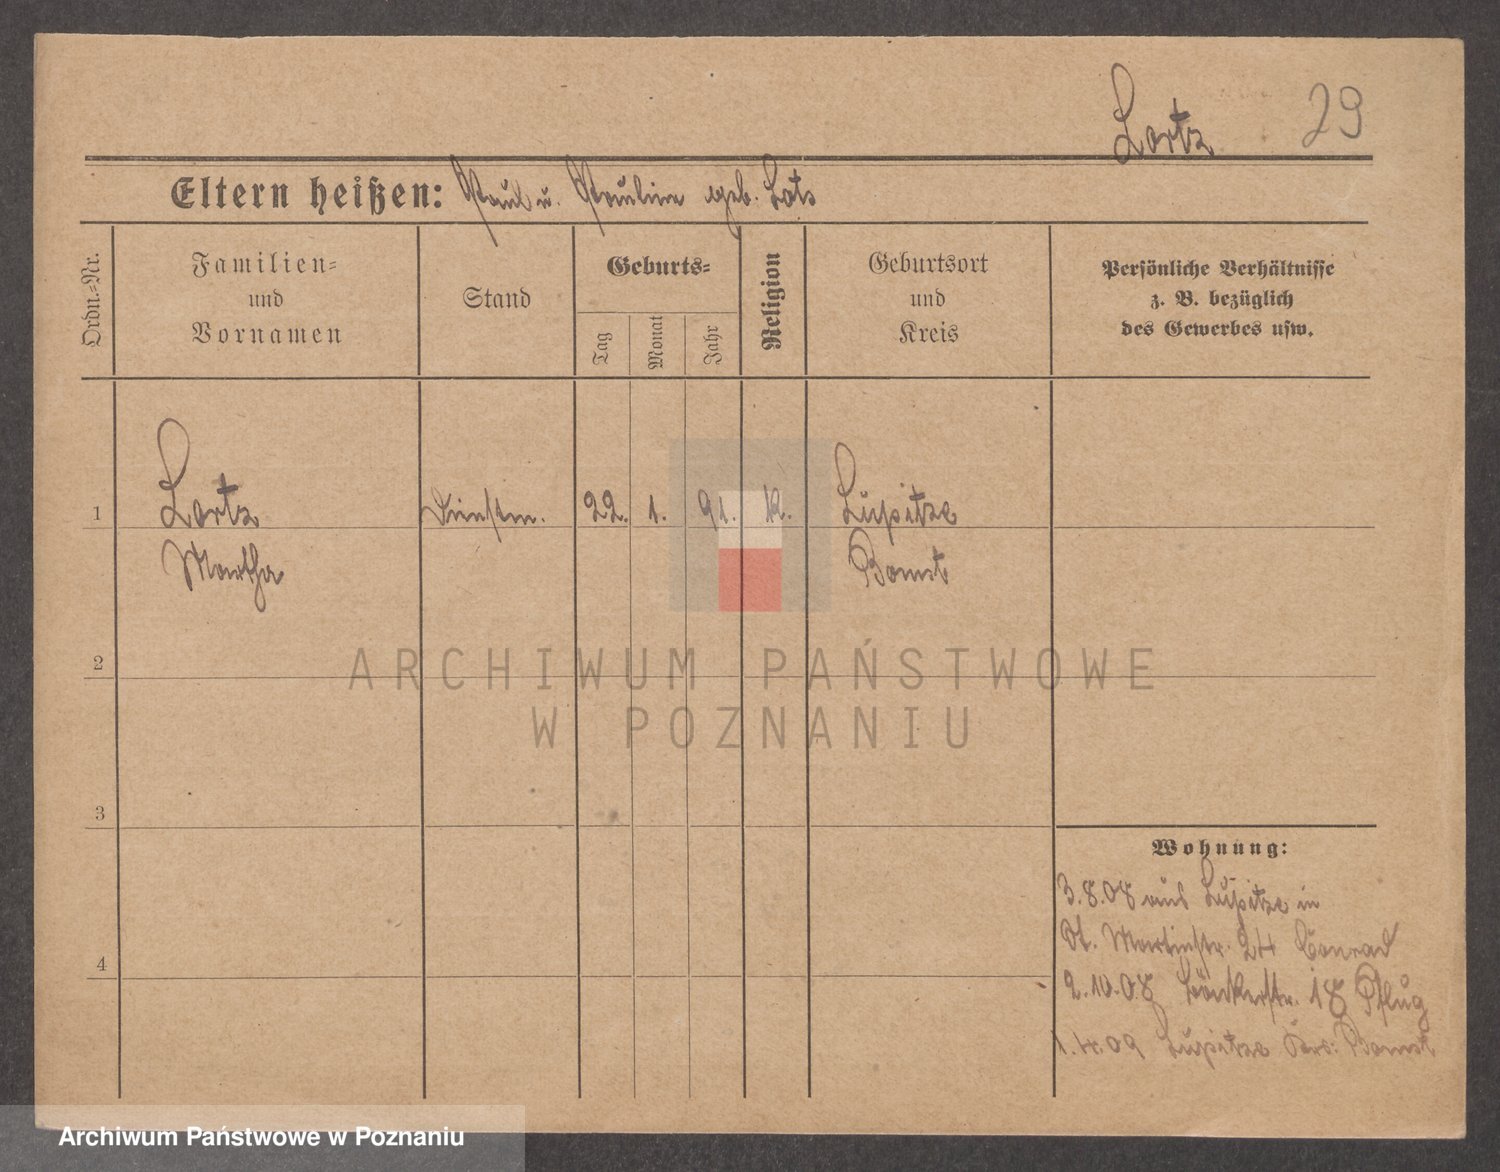 Lortz 29
Eltern heißen: Paul u. Pauline geb. Lots
Ordn.-Nr.
Familien-
und
Vornamen
Stand
Geburts-
Tag
Monat
Jahr
Religion
Geburtsort
und
Kreis
Persönliche Verhältnisse
z. B. bezüglich
des Gewerbes usw.
1 Lortz Dienstm. 22. 1. 91. K. Lupitze
Martha Bomst
2
3
4
Wohnung:
3.8.08 aus Lupitze in
St. Martinstr. 24 Conrad
2.10.08 Bäckerstr. 18 Pflug
1.4.09 Lupitze Krs: Bomst
ARCHIWUM PAŃSTWOWE
W POZNANIU
Archiwum Państwowe w Poznaniu